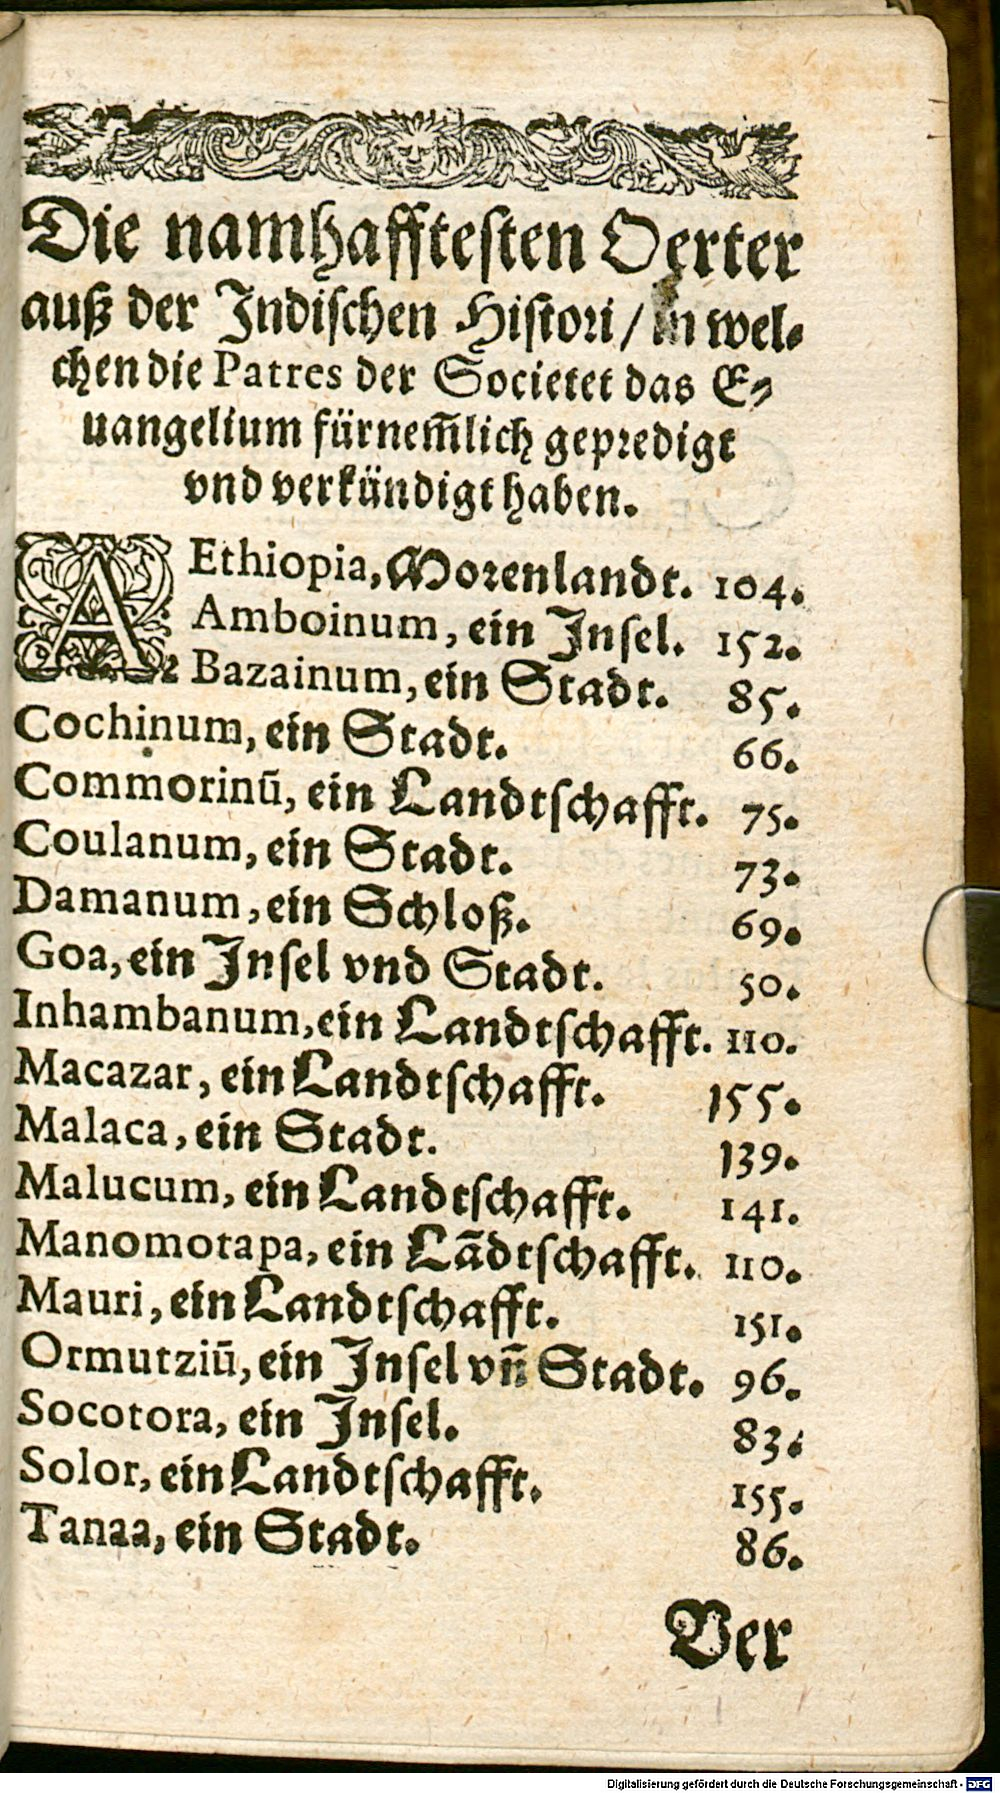 Die namhafftesten Oerter
auß der Indischen Histori / in wel-
chen die Patres der Societet das E-
uangelium fürnem̃lich gepredigt
vnd verkündigt haben.
AEthiopia, Morenlandt. 104.
Amboinum, ein Insel. 152.
Bazainum, ein Stadt. 85.
Cochinum, ein Stadt. 66.
Commorinū, ein Landtschafft. 75.
Coulanum, ein Stadt. 73.
Damanum, ein Schloß. 69.
Goa, ein Insel vnd Stadt. 50.
Inhambanum, ein Landtschafft. 110.
Macazar, ein Landtschafft. 155.
Malaca, ein Stadt. 139.
Malucum, ein Landtschafft. 141.
Manomotapa, ein Lādtschafft. 110.
Mauri, ein Landtschafft. 151.
Ormutziū, ein Insel vn̄ Stadt. 96.
Socotora, ein Insel. 83.
Solor, ein Landtschafft. 155.
Tanaa, ein Stadt. 86.
Ver
Digitalisierung gefördert durch die Deutsche Forschungsgemeinschaft - DFG